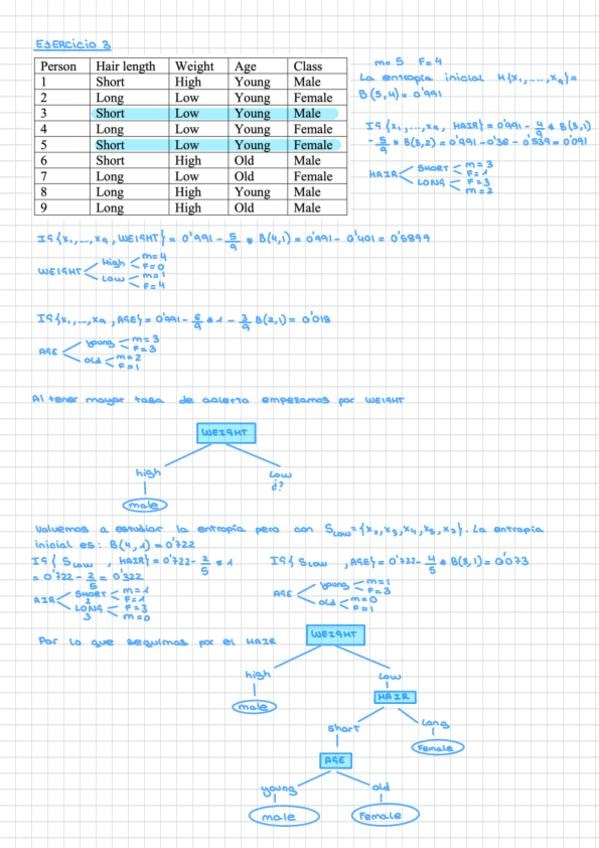 EJERCICIO 3
Person Hair length Weight Age Class
1 Short High Young Male
2 Long Low Young Female
3 Short Low Young Male
4 Long Low Young Female
5 Short Low Young Female
6 Short High Old Male
7 Long Low Old Female
8 Long High Young Male
9 Long High Old Male
m= 5 F= 4
La entropía inicial H{x₁,...,x₉}=
B(5,4)=0'991
IG{x₁,...,x₉, HAIR}=0'991- 4/9 * B(3,1)
- 5/9 * B(3,2)=0'991-0'36-0'539=0'091
HAIR
SHORT m=3 F=1
LONG F=3 m=2
IG{x₁,...,x₉, WEIGHT}= 0'991 - 5/9 * B(4,1)=0'991-0'401=0'5899
WEIGHT
High m=4 F=0
Low m=1 F=4
IG{x₁,...,x₉, AGE}=0'991- 6/9 * 1 - 3/9 B(2,1)= 0'018
AGE
young m=3 F=3
old m=2 F=1
Al tener mayor tasa de acierto empezamos por WEIGHT
WEIGHT
high low
¿?
male
Volvemos a estudiar la entropía pero con S_Low={x₂,x₃,x₄,x₅,x₇}. La entropía
inicial es: B(4,1)=0'722
IG{S_Low, HAIR}=0'722- 2/5 * 1
=0'722- 2/5 = 0'322
AIR
SHORT 2 m=1 F=1
LONG 3 F=3 m=0
IG{S_Low, AGE}=0'722- 4/5 * B(3,1)=0'073
AGE
young m=1 F=3
old m=0 F=1
Por lo que seguimos por el HAIR
WEIGHT
high low
male HAIR
short long
Female
AGE
young old
male Female